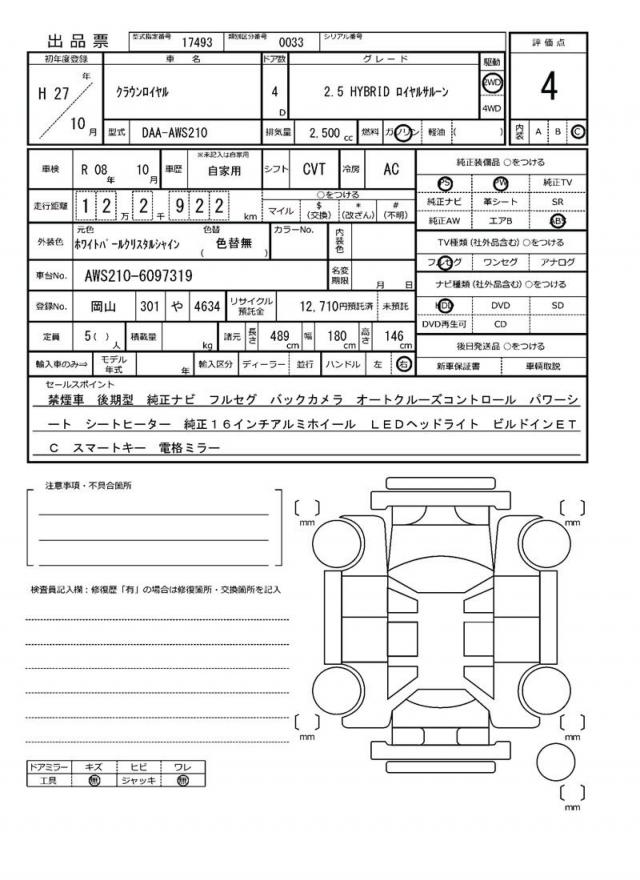 出品票 型式指定番号 17493 類別区分番号 0033 シリアル番号
評価点
4
内装 A B C
初年度登録 車名 ドア数 グレード 駆動
H 27 年 10 月
クラウンロイヤル 4 D 2.5 HYBRID ロイヤルサルーン 2WD
4WD
型式 DAA-AWS210 排気量 2,500 cc 燃料 ガソリン 軽油 ( )
車検 R 08 年 10 月 車歴 ※未記入は自家用 自家用 シフト CVT 冷房 AC
走行距離 1 2 万 2 千 9 2 2 km
○をつける
マイル $ (交換) * (改ざん) # (不明)
外装色 元色 ホワイトパールクリスタルシャイン 色替 ( 色替無 ) カラーNo. 内装色
車台No. AWS210-6097319 名変期限 月 日
登録No. 岡山 301 や 4634 リサイクル預託金 12,710円預託済 未預託
定員 5( ) 人 積載量 kg 諸元 長さ 489 cm 幅 180 cm 高さ 146 cm
輸入車のみ⇒ モデル年式 年 輸入区分 ディーラー 並行 ハンドル 左 右
純正装備品 ○をつける
PS PW 純正TV
純正ナビ 革シート SR
純正AW エアB ABS
TV種類 (社外品含む) ○をつける
フルセグ ワンセグ アナログ
ナビ種類 (社外品含む) ○をつける
HDD DVD SD
DVD再生可 CD
後日発送品 ○をつける
新車保証書 車輌取説
セールスポイント
禁煙車 後期型 純正ナビ フルセグ バックカメラ オートクルーズコントロール パワーシ
ート シートヒーター 純正16インチアルミホイール LEDヘッドライト ビルドインET
C スマートキー 電格ミラー
注意事項・不具合箇所
検査員記入欄:修復歴「有」の場合は修復箇所・交換箇所を記入
ドアミラー キズ ヒビ ワレ
工具 無 ジャッキ 無
mm
mm
mm
mm
mm